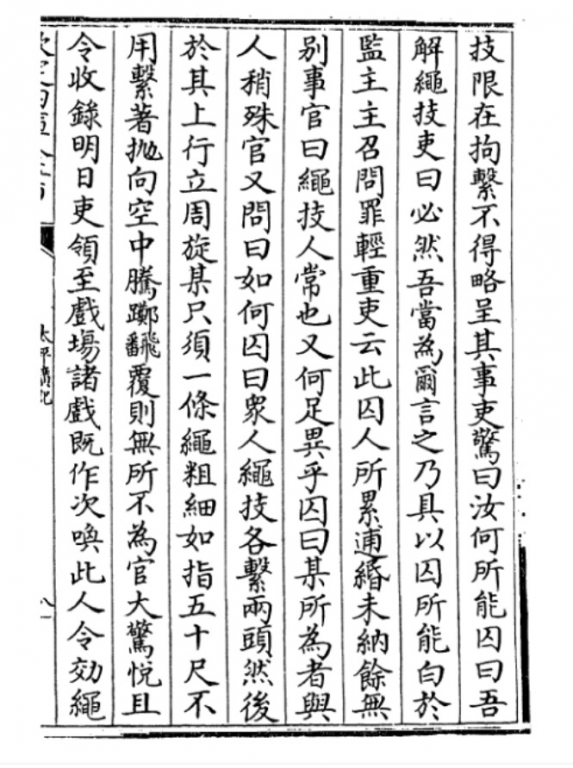 技限在拘繫不得略呈其事吏驚曰汝何所能囚曰吾
解繩技吏曰必然吾當為爾言之乃具以囚所能白於
監主主召問罪輕重吏云此囚人所累逋緡未納餘無
别事官曰繩技人常也又何足異乎囚曰某所為者與
人稍殊官又問曰如何囚曰眾人繩技各繫兩頭然後
於其上行立周旋某只須一條繩粗細如指五十尺不
用繫著拋向空中騰躑飜覆則無所不為官大驚悅且
令收錄明日吏領至戲場諸戲既作次喚此人令効繩
太平廣記